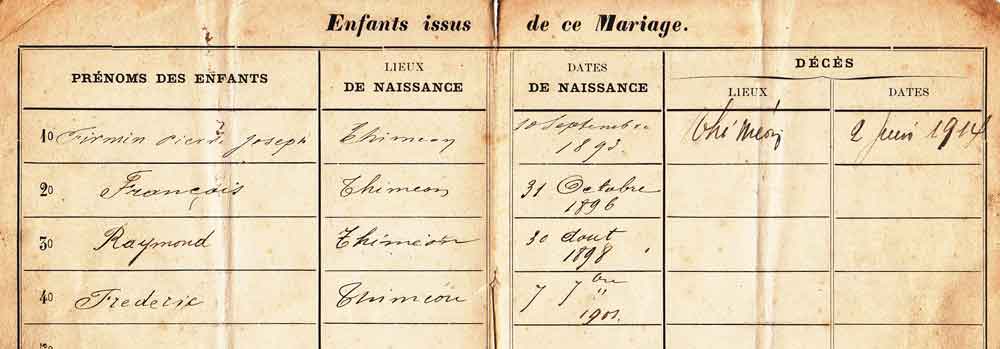 Enfants issus de ce Mariage.
PRÉNOMS DES ENFANTS
LIEUX
DE NAISSANCE
DATES
DE NAISSANCE
DÉCÈS
LIEUX
DATES
1o Firmin Pierre Joseph Thimeon 10 Septembre
1893. Thiméon 2 Juin 1914
2o François Thimeon 31 Octobre
1896
3o Raymond Thiméon 30 Aout
1898
4o Frederic Thiméon 7 7bre
1901.